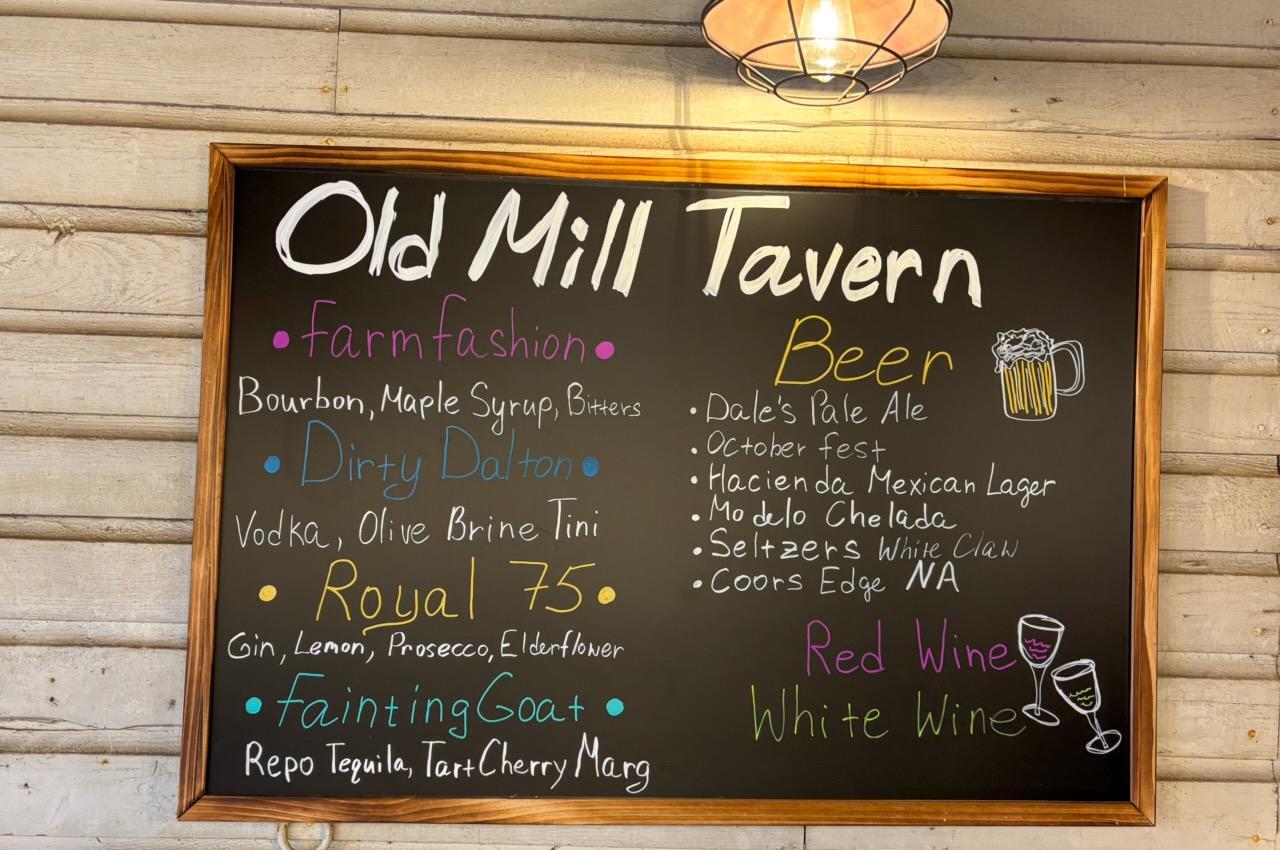 Old Mill Tavern
Farmfashion
Bourbon, Maple Syrup, Bitters
Dirty Dalton
Vodka, Olive Brine Tini
Royal 75
Gin, Lemon, Prosecco, Elderflower
Fainting Goat
Repo Tequila, Tart Cherry Marg
Beer
• Dale's Pale Ale
• October fest
• Hacienda Mexican Lager
• Modelo Chelada
• Seltzers White Claw
• Coors Edge NA
Red Wine
White Wine